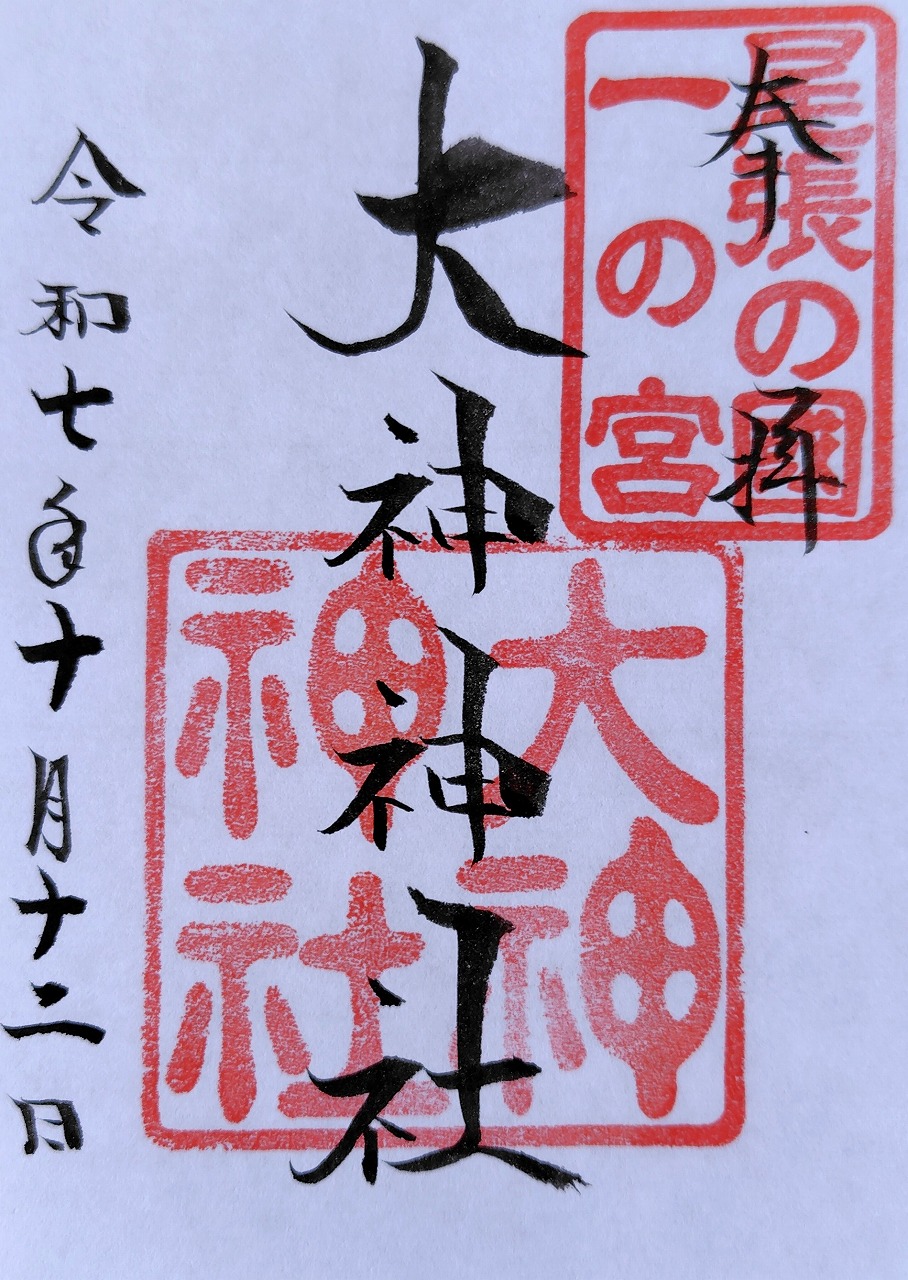 奉拝
尾張の國
一の宮
大神神社
大神
神社
令和七年十月十二日